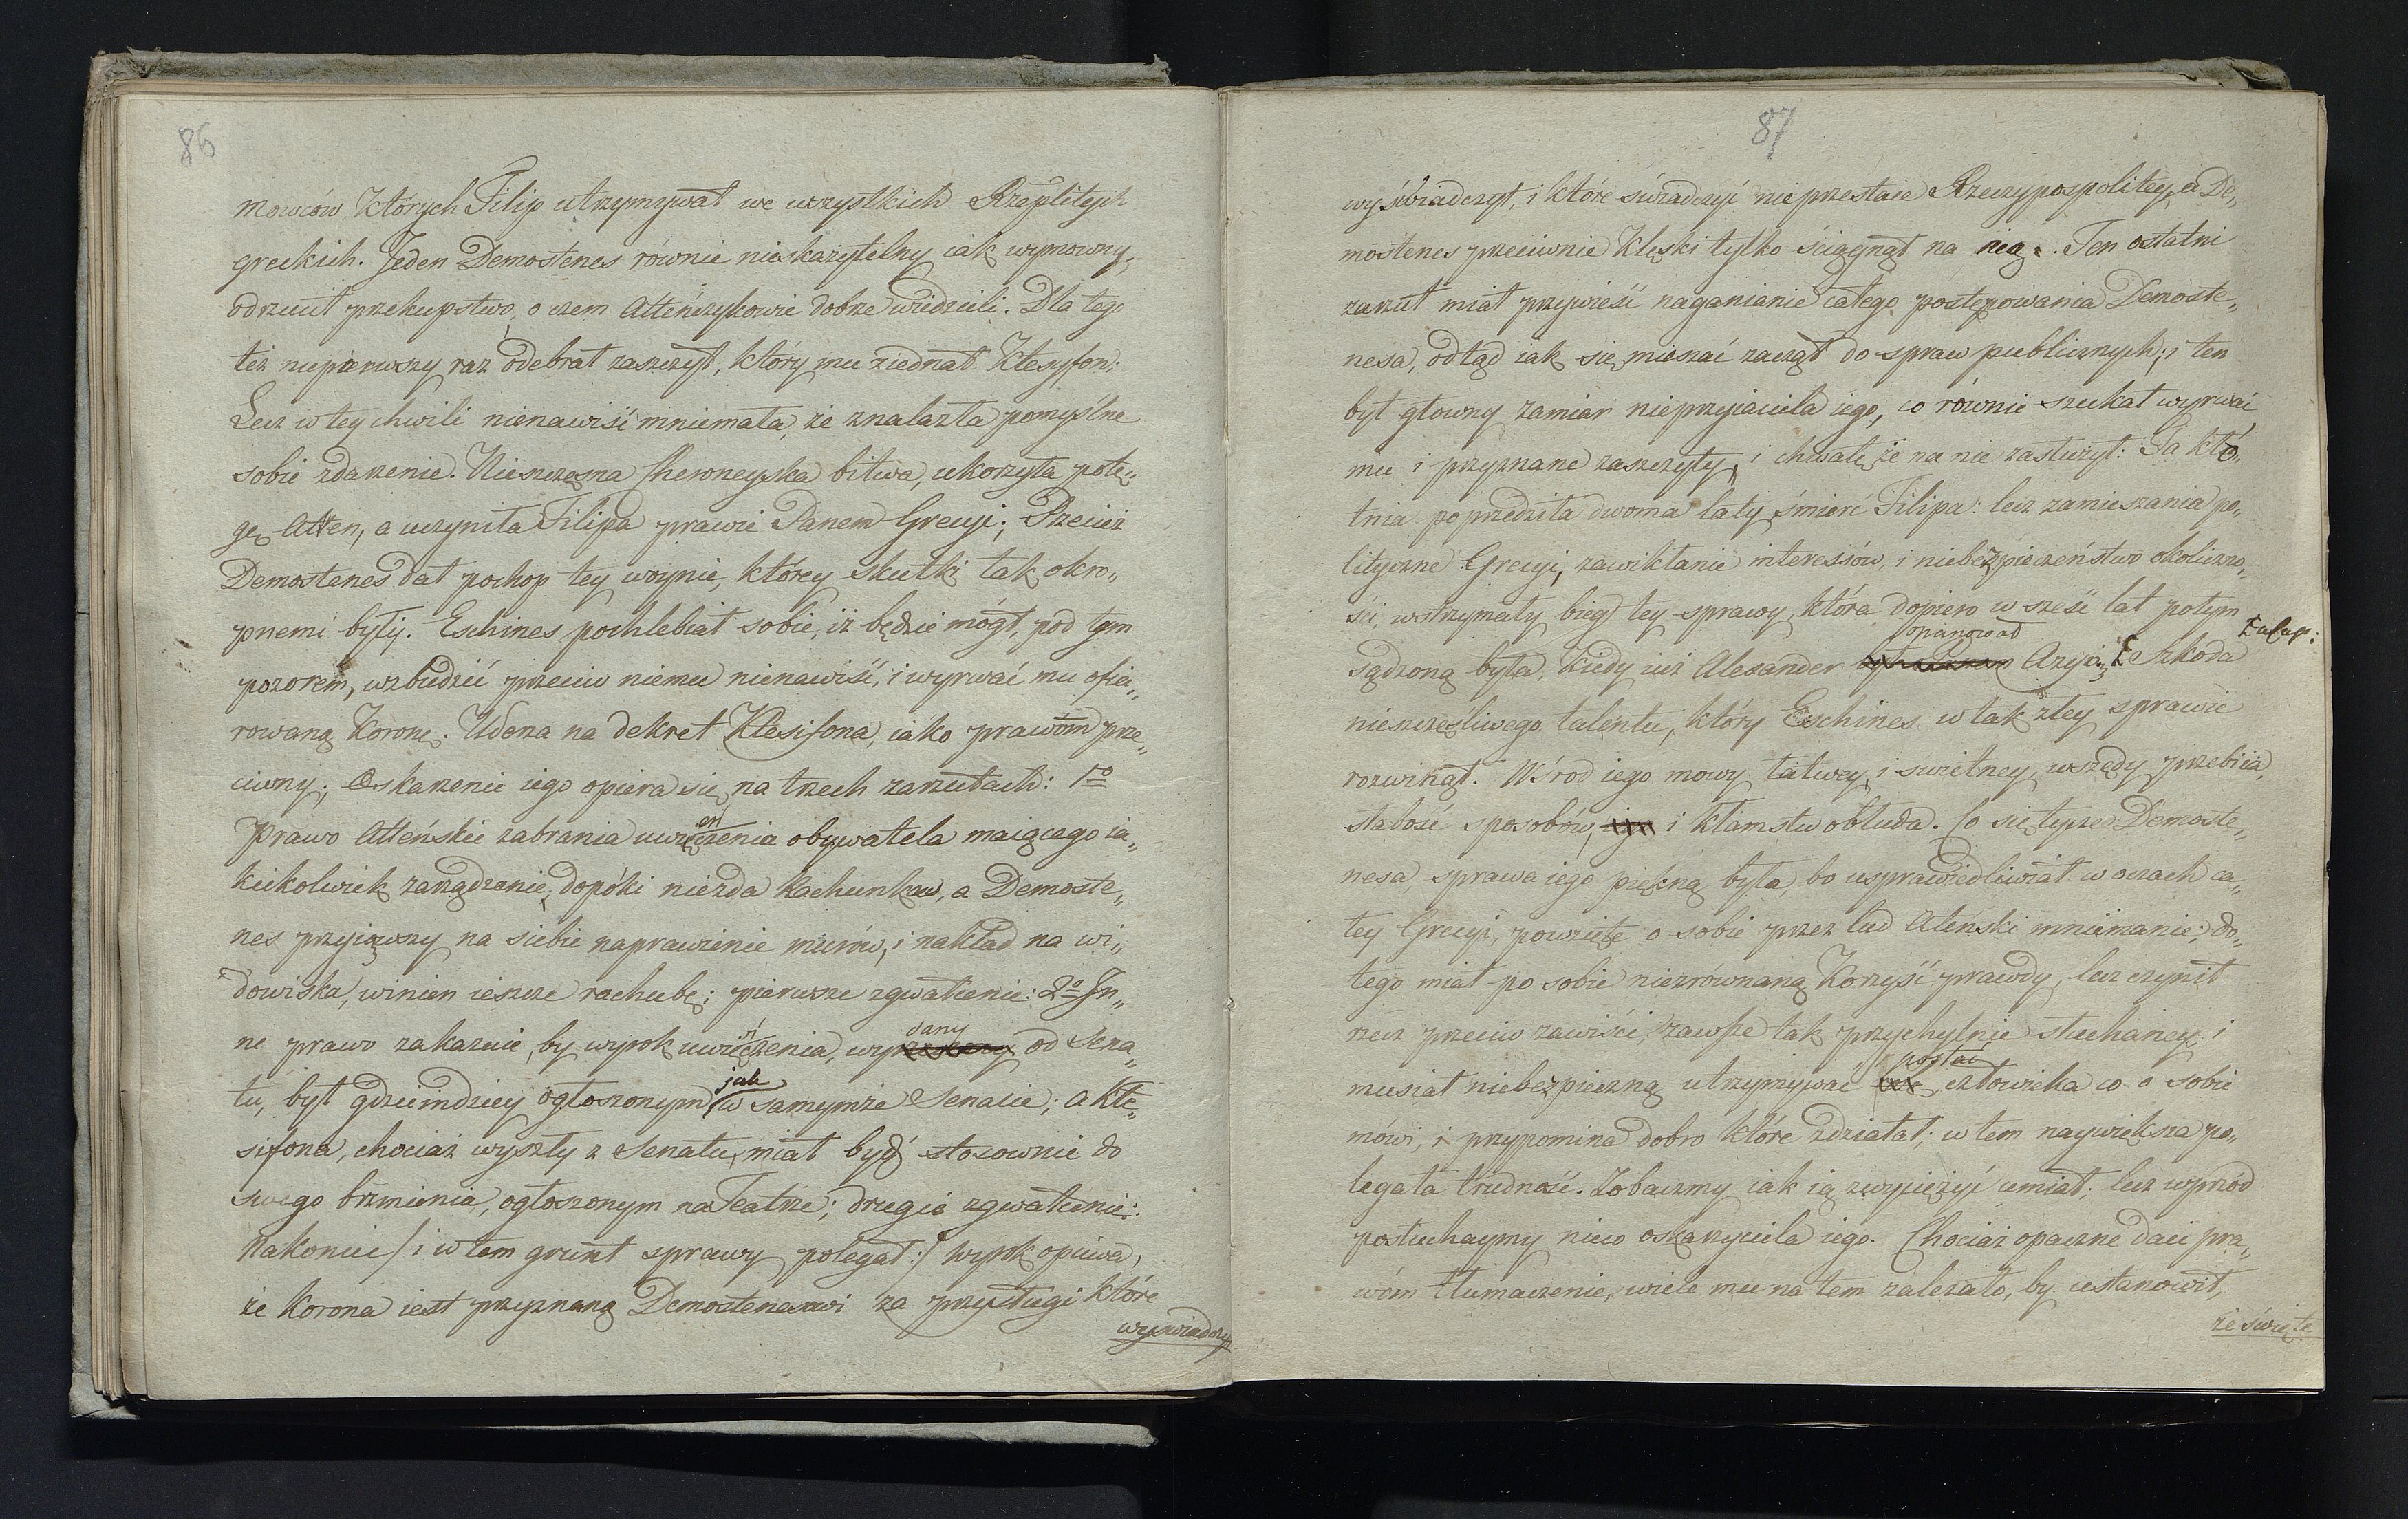 86
mowców których Filip utrzymywał we wszystkich Rzeplitych
greckich. Jeden Demostenes równie nieskazytelny iak wymowny,
odrzucił przekupstwo, o czem Atteńczykowie dobrze wiedzieli. Dla tego
też nupierwszy raz odebrał zaszczyt, który mu ziednał Ktesyfon:
Lecz w tey chwili nienawiść mniemała, że znalazła pomyślne
sobie zdarzenie. Nieszczęsna Cheroneyska bitwa, ukorzyła potę„
gę Atten, a uczyniła Filipa prawie Panem Grecyi; Przecież
Demostenes dał pochop tey woynie, którey skutki tak okro„
pnemi były. Eschines pochlebiał sobie, iż będzie mógł, pod tym
pozorem, wzbudzić przeciw niemu nienawiść, i wyrwać mu ofia„
rowaną Koronę. Udeża na dekret Ktesifona, iako prawom prze„
ciwny; Oskarzenie iego opiera się na trzech zarzutach: 1o
Prawo Atteńskie zabrania uwieńczenia obywatela maiącego ia„
kiekolwiek zarządzanie, dopóki niezda Rachunków, a Demoste„
nes przyiąwszy na siebie naprawienie murów, i nakład na wi„
dowiska, winien ieszcze rachubę; pierwsze zgwałcenie: 2o In„
ne prawo zakazuie, by wyrok uwieńczenia, wydany od Sena„
tu, był gdzieindziey ogłoszonym jak w samymże Senacie; a Kte„
sifona, chociaż wyszły z Senatu, miał być stosownie do
swego brzmienia, ogłoszonym na Teatrze; drugie zgwałcenie:
nakoniec /: i w tem grunt sprawy polegał :/ Wyrok opiewa,
że Korona iest przyznaną Demostenesowi za przysługi które
wyświadczy
87
wyświadczył, i które świadczyć nieprzestaie Rzeczypospolitey, a De„
mostenes przeciwnie Klęski tylko ściągnął na nią. Ten ostatni
zarzut miał przywieść naganianie całego postępowania Demoste„
nesa, odtąd iak się mieszać zaczął do spraw publicznych; i ten
był głowny zamiar nieprzyiaciela iego, co równie szukał wyrwać
mu i przyznane zaszczyty, i chwałę że na nie zasłużył: Ta kłó„
tnia poprzedziła dwoma laty śmierć Filipa: lecz zamieszania po„
lityczne Grecyi, zawikłanie interessów, i niebezpieczeństwo okoliczno„
ści, wstrzymały bieg tey sprawy, która dopiero w sześć lat potym
sądzoną była, kiedy iuż Alexander opanował Azyią. Szkoda
nieszczęśliwego talentu, który Eschines w tak złey sprawie
rozwinął. Wśród iego mowy łatwey i swietney, wszędy przebiia
słabość sposobów, i kłamstw obłuda. Co się tycze Demoste„
nesa, sprawa iego piękną była, bo usprawiedliwiał w oczach ca„
łey Grecyi, powzięte o sobie przez lud Ateński mniemanie; do„
tego miał po sobie niezrównaną Korzyść prawdy, lecz czynił
rzecz przeciw zawiści, zawsze tak przychylnie słuchaney i
musiał niebezpieczną utrzymywać postać człowieka co o sobie
mówi, i przypomina dobro które zdziałał; w tem naywiększa po„
legała trudność. Zobaczmy iak ią zwyciężyć umiał; lecz wprzód
posłuchaymy nieco oskarzyciela iego. Chociaż opaczne daie pra„
wóm tłumaczenie, wiele mu na tem zależało, by ustanowił,
że święte